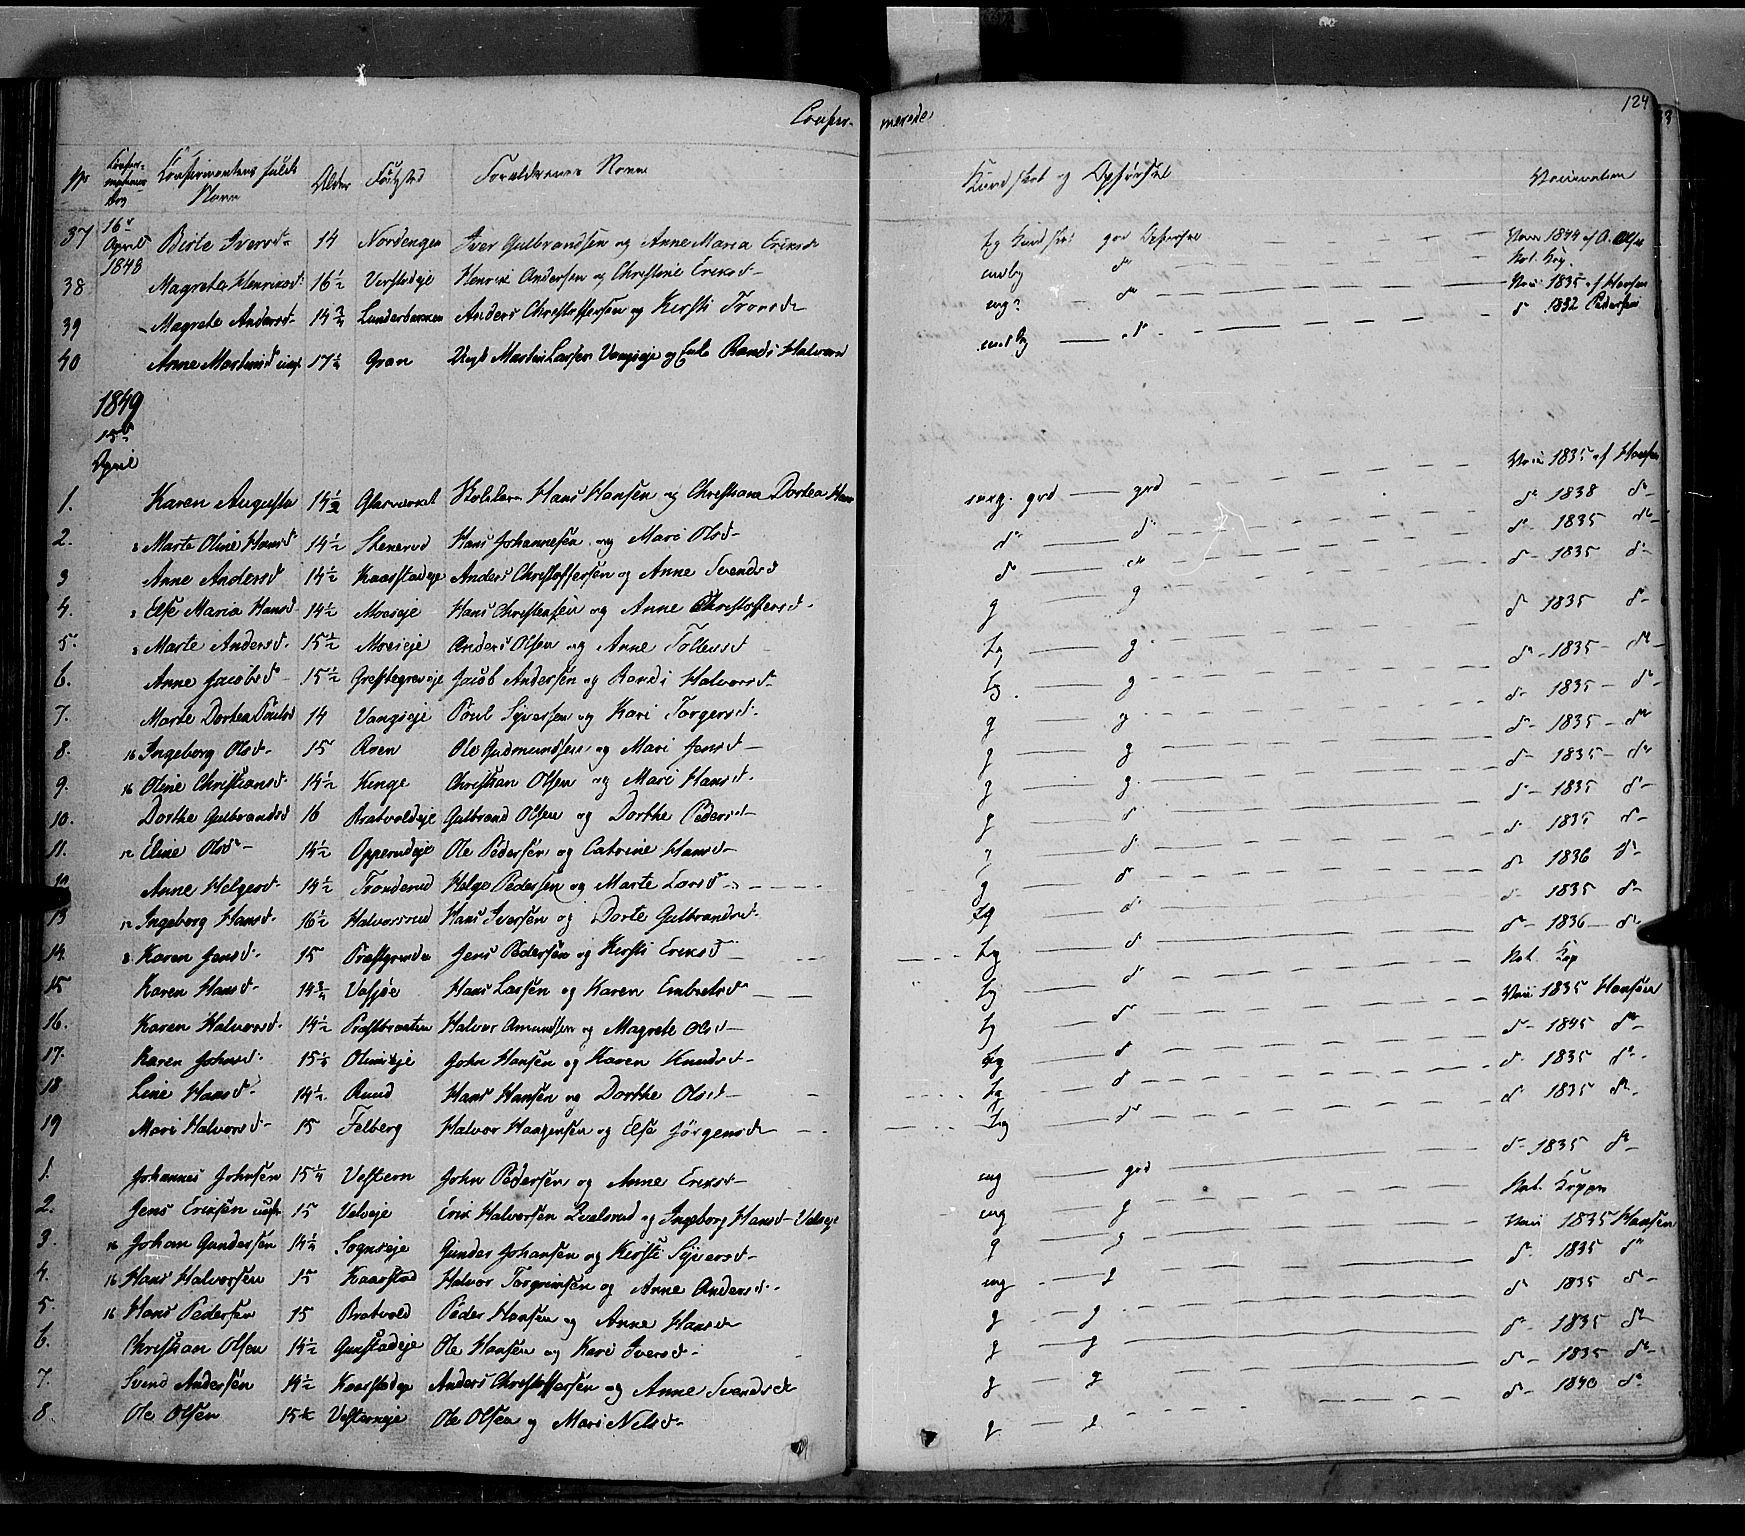 124
Confir- merede
No Confirmations Dag Confirmantens fulde Navn Alder Fødested Forældrenes Navn Kundskab og Opførsel Vaccination
37 16de April 1848 Birte Iversd. 14 Nordengen Iver Gulbrandsen og Anne Maria Eriksd. god Opførsel Vacc 1844 af O. Olsen
38 Magrete Henriksd. 16½ Henrik Andersen og Christine Eriksd. do Nat. Kop.
39 Magrete Andersd. 14¾ Lunderbakken Anders Christoffersen og Kirsti Tronsd. do Vacc 1835 af Hansen
40 Anne Martinsd. uægte 17¼ Gran Ungk Martin Larsen Vangseje og Enke Randi Halvorsd. do do 1832 Pedersen
1849
15de
April
1. Karen Augusta 14½ Glasværket Hans Hansen og Christiane Dortea god god Vacc 1835 af Hansen
2. Marte Oline Hansd. 14½ Stenerud Hans Johannesen og Mari Olsd. do do do 1838 do
3 Anne Andersd. 14½ Kaarstadeje Anders Christoffersen og Anne Svendsd. do do do 1835 do
4. Else Maria Hansd. 14½ Moeseje Hans Christensen og Anne Christoffersd. g g do 1835 do
5. Marte Andersd. 15½ Moeseje Anders Olsen og Anne Tollevsd. Tg g do 1835 do
6. Anne Jacobsd. 15½ Jacob Andersen og Randi Halvorsd. Tg g do 1835 do
7. Marte Dortea Poulsd. 14 Vangseje Poul Syversen og Kari Torgersd. g g do 1835 do
8. 16 Ingeborg Olsd. 15 Roen Ole Gudmundsen og Mari Jensd. g g do 1835 do
9. 16 Oline Christiansd. 14½ Kinge Christian Olsen og Mari Hansd. g g do 1835 do
10. Dorthe Gulbrandsd. 16 Bratvoldeje Gulbrand Olsen og Dorthe Pedersd. g do do 1835 do
11. 12 Eline Olsd. 14½ Opperudeje Ole Pedersen og Catrine Hansd. do do 1835 do
12 Anne Helgesd. 14½ Tronderud Helge Pedersen og Marte Larsd. g do do 1836 do
13 12 Ingeborg Hansd. 16½ Halvorsrud Hans Iversen og Dorte Gulbrandsd. Tg do do 1835 do
14. 8 Karen Jensd. 15 Præstgrinden Jens Pedersen og Kirsti Eriksd. Tg do do 1836 do
15 Karen Hansd. 14¾ Valsjøe Hans Larsen og Karen Embretsd. Tg do Nat. Kop
16. Karen Halvorsd. 14½ Præstbraaten Halvor Amundsen og Magrete Olsd. Tg do Vacc 1835 Hansen
17. Karen Johnsd. 15½ Olimbeje John Hansen og Karen Knudsd. Tg do do 1845 do
18 Line Hansd. 14½ Ruud Hans Hansen og Dorthe Olsd. Tg do do 1835 do
19 Mari Halvorsd. 15 Felberg Halvor Haagensen og Else Jørgensd. Tg do do 1835 do
1. Johannes Johnsen 15¼ Vestern John Pedersen og Anne Eriksd. mg god do 1835 do
2. Jens Eriksen uægte 15 Velseje Erik Halvorsen Qvelsrud og Ingeborg Hansd. Velseje mg g Nat. Kopper
3. 16 Johan Gundersen 14¼ Sognseje Gunder Johansen og Kirsti Syversd. g g Vacc 1835 Hansen
4. 16 Hans Halvorsen 15 Kaarstad Halvor Torgrimsen og Anne Andersd. mg g do 1835 do
5. 16 Hans Pedersen 15 Bratvold Peder Hansen og Anne Hansd. g g do 1835 do
6. Christian Olsen 14½ Gunstadeje Ole Hansen og Kari Iversd. g g do 1835 do
7. Svend Andersen 14½ Kaarstadeje Anders Christoffersen og Anne Svendsd. g g do 1835 do
8. Ole Olsen 15½ Vesterneje Ole Olsen og Mari Nilsd. g g do 1840 do